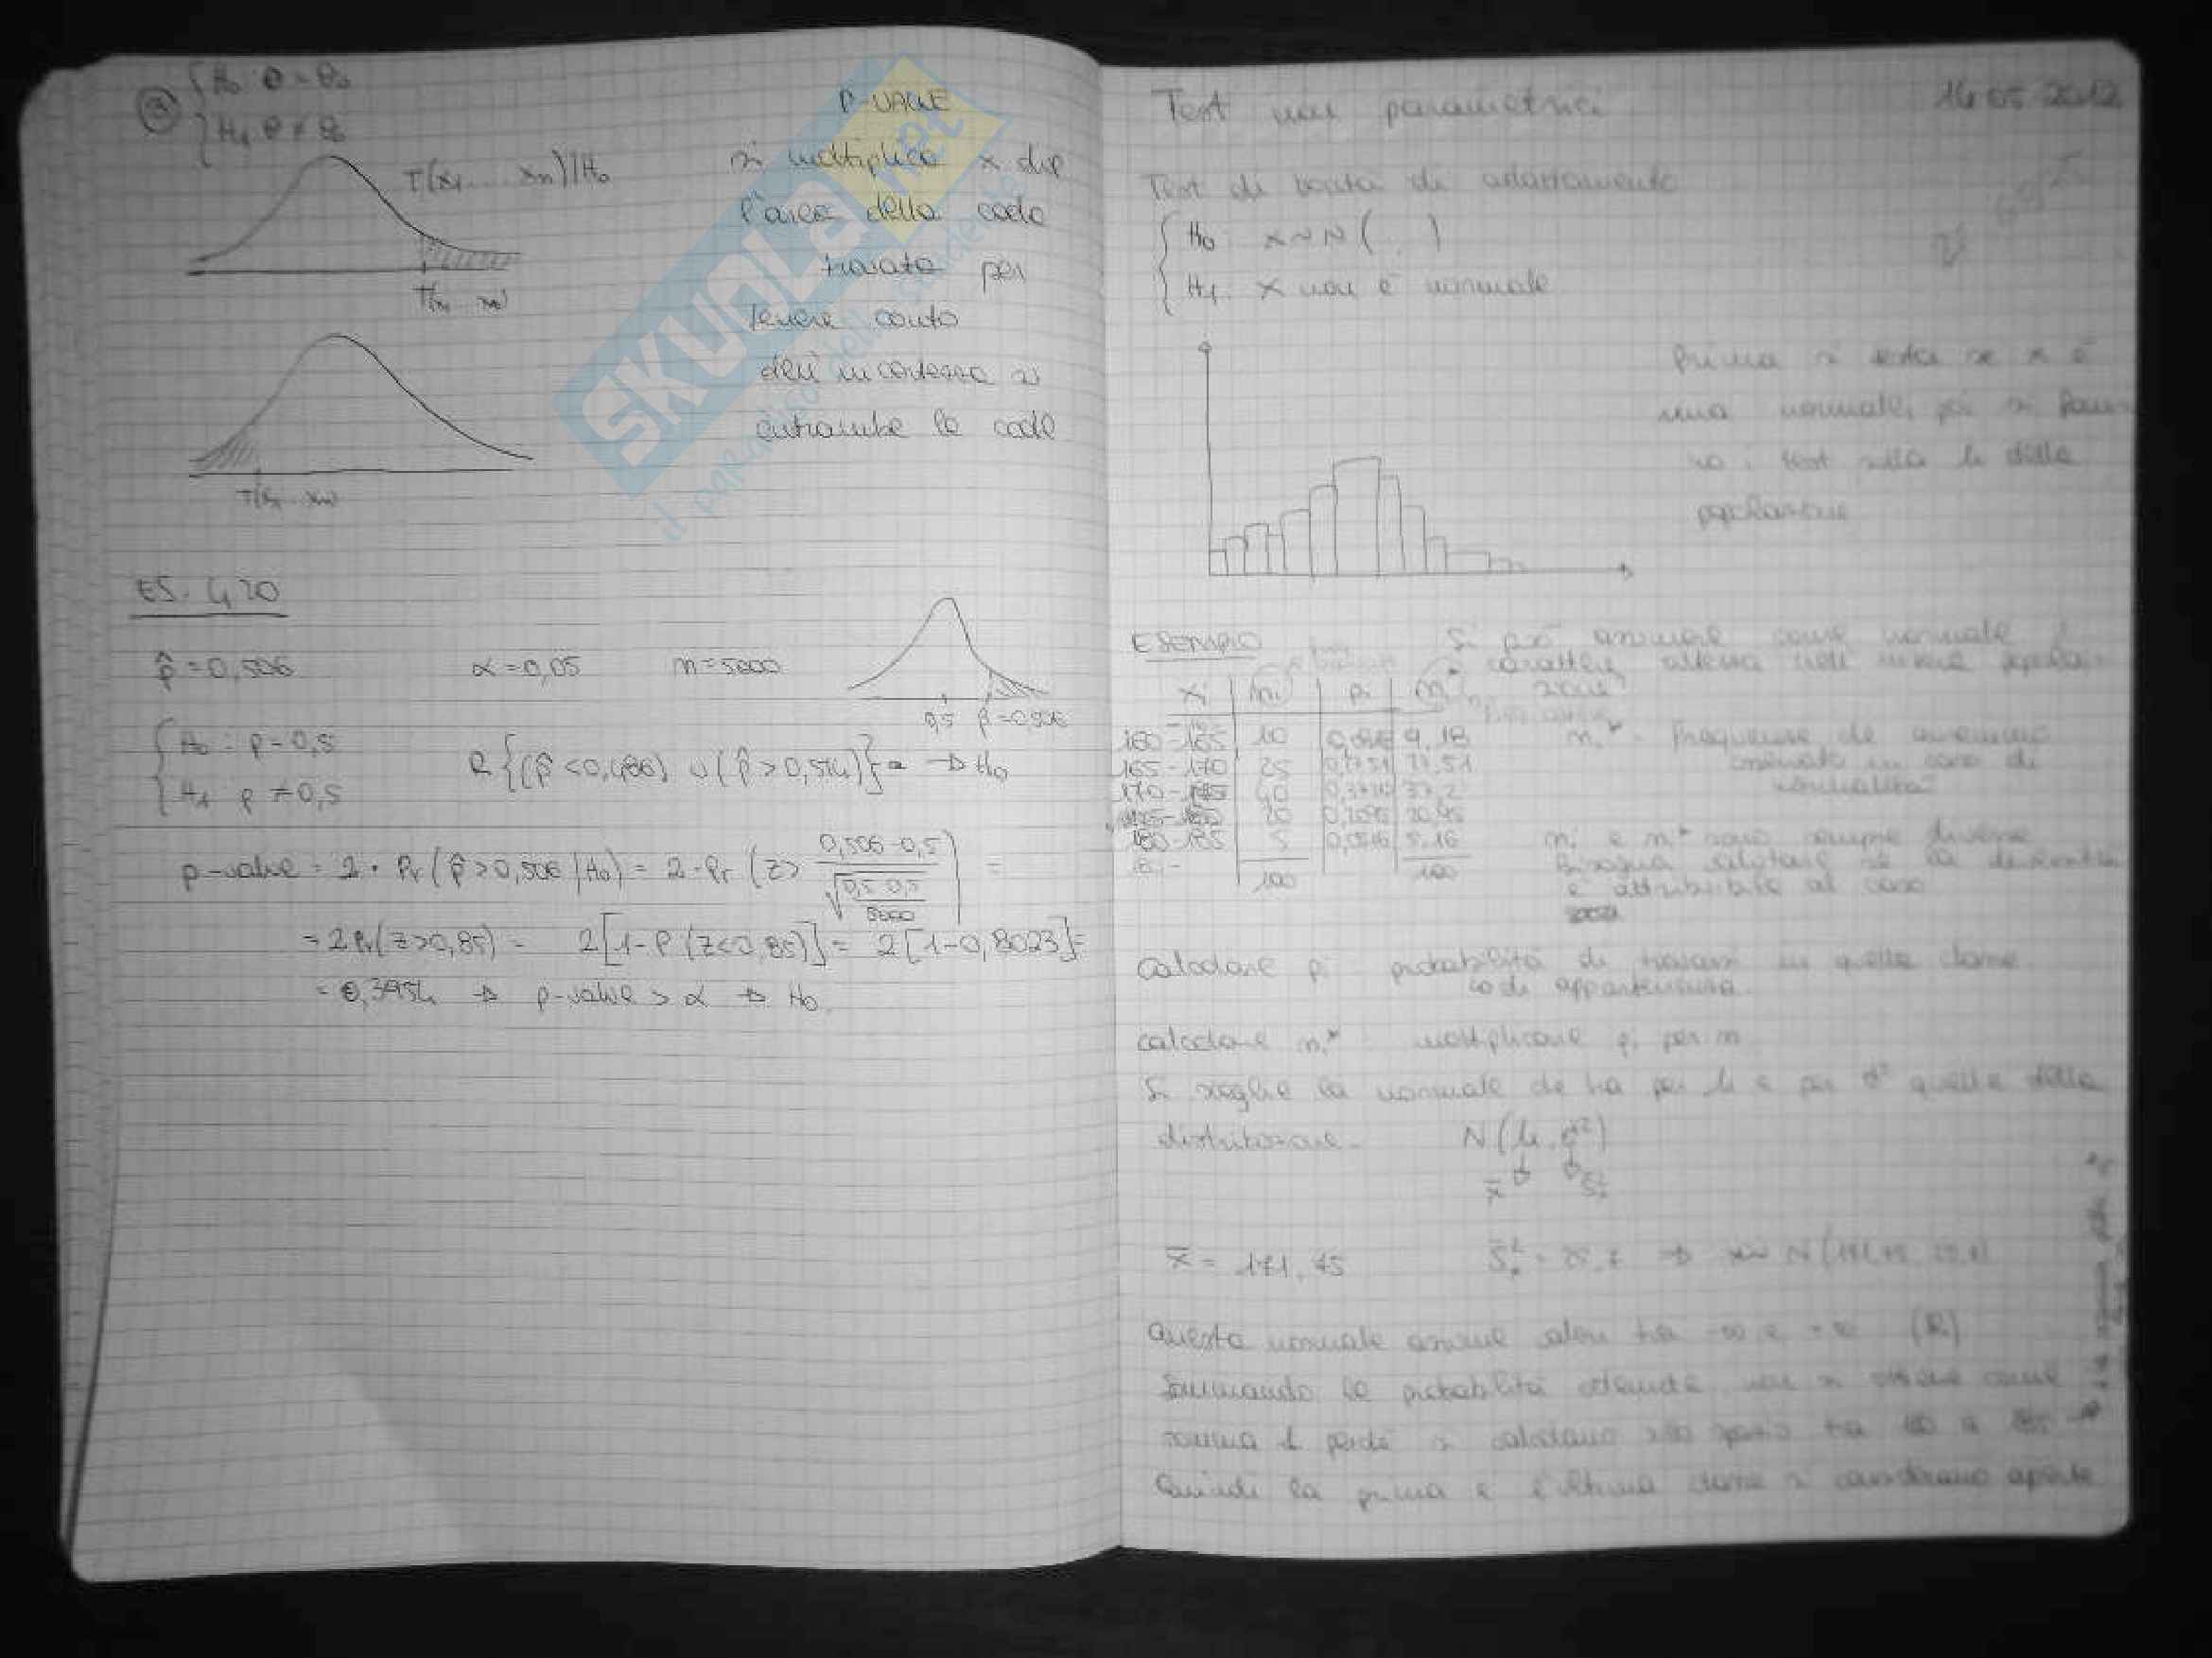 ③ { H₀ θ = θ₀
{ H₁ θ ≠ θ₀
T(x₁ ... xₙ)/H₀
P-VALUE
si moltiplica x due
l'area della coda
trovata per
tenere conto
dell'incertezza si
entrambe le code
SKUOLA.net
ES. 4.20
p̂ = 0,506 α = 0,05 n = 5000
0,5 p̂ = 0,506
{ H₀ : p = 0,5
{ H₁ p ≠ 0,5
R {(p̂ < 0,486) ∪ (p̂ > 0,514)} → H₀
p-value = 2 · Pr (p̂ > 0,506 | H₀) = 2 · Pr (Z > (0,506 - 0,5) / √(0,5 0,5 / 5000)) =
= 2 Pr (Z > 0,85) = 2[1 - P (Z < 0,85)] = 2[1 - 0,8023] =
= 0,3954 → p-value > α → H₀
Test non parametrici 14 05 2012
Test di bontà di adattamento
{ H₀ : X ~ N ( , )
{ H₁ : X non è normale
Prima si testa se x è
una normale, poi si fan
no i test sulla μ della
popolazione
ESEMPIO Si può assumere come normale
il carattere altezza nell'intera popola-
zione?
xᵢ | nᵢ | pᵢ | nᵢ*
160-165 | 10 | 9,18
165-170 | 25 | 27,51
170-175 | 40 | 37,2
175-180 | 20 | 0,2095 | 20,95
180-185 | 5 | 0,0516 | 5,16
100 100
nᵢ* = frequenze che avremmo
osservato in caso di
normalità
nᵢ e nᵢ* sono sempre diverse
Bisogna valutare se la diversità
è attribuibile al caso
Calcolare pᵢ probabilità di trovarsi in quella classe
o di appartenenza.
calcolare nᵢ* moltiplicare pᵢ per n
Si sceglie la normale che ha per μ e per σ² quelle della
distribuzione. N (μ, σ²)
x̄
x̄ = 171,75
Questa normale assume valori tra -∞ e +∞ (R)
Sommando le probabilità ottenute non si ottiene come
somma 1 perché si calcolano
Quindi la prima e l'ultima classe si considerano aperte